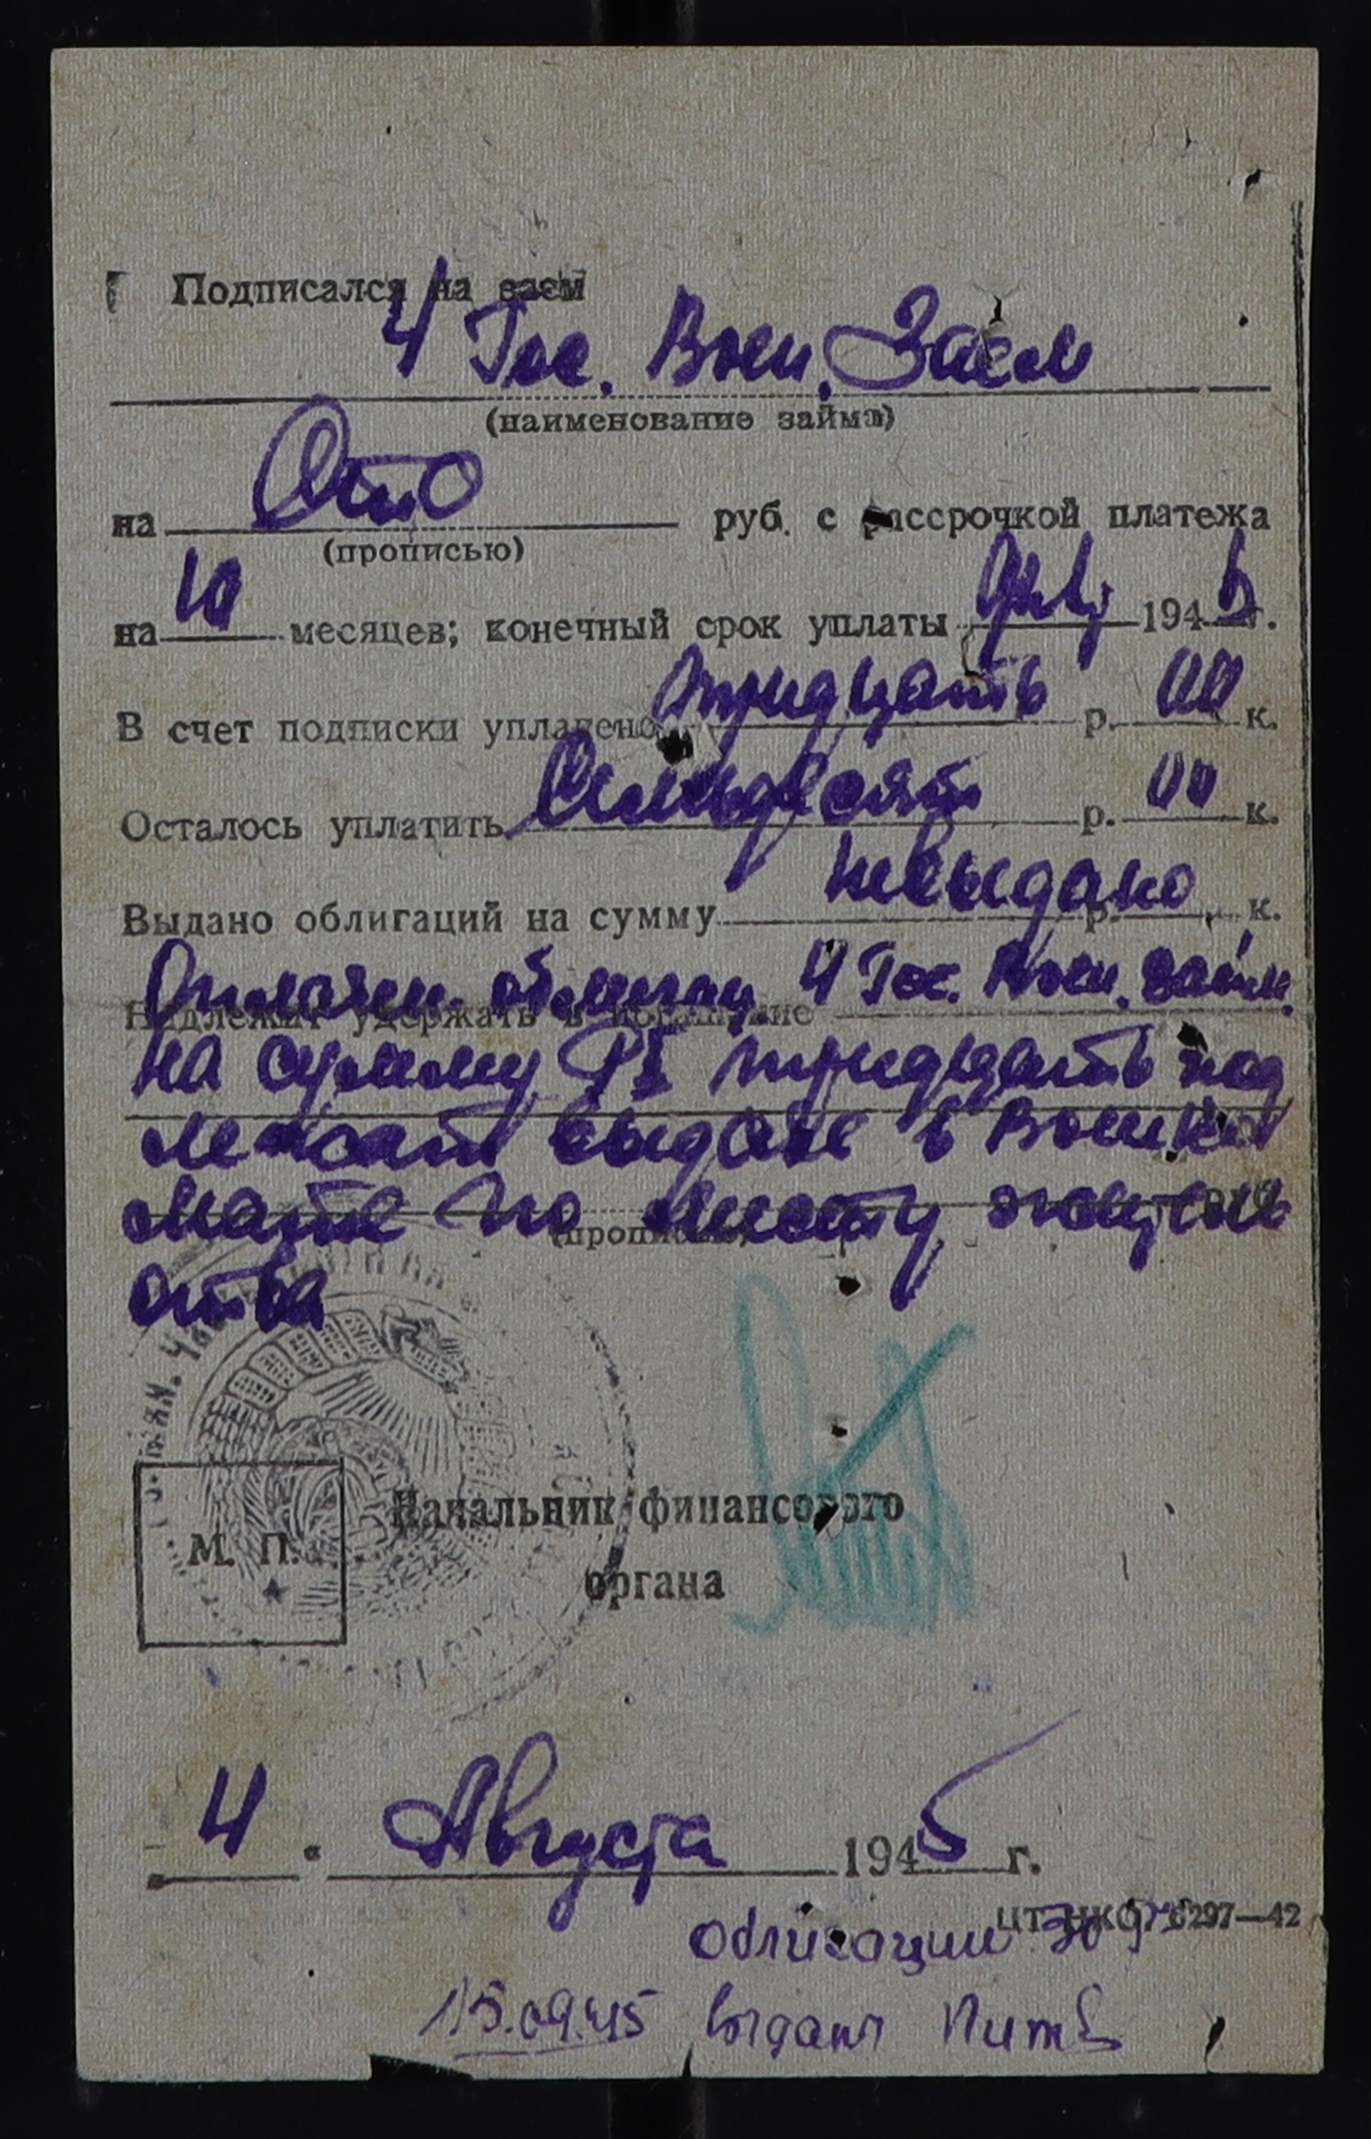 Подписался на заем
4 Гос. Воен. Заем
(наименование займа)
на Сто руб. с рассрочкой платежа
(прописью)
на 10 месяцев; конечный срок уплаты 194 г.
В счет подписки уплачено тридцать р. 00 к.
Осталось уплатить Семьдесят р. 00 к.
Выдано облигаций на сумму невыдано р. к.
Оплачен. облигац 4 Гос. Воен. займ.
Надлежит удержать в погашение
на сумму тридцать под
лежат выдаче в Военко
мате по месту жительь
(прописью)
ства
М. П.
Начальник финансового
органа
4 . Августа 1945 г.
ЦТ НКО 6297—42
Облигации 30 р
15.09.45 выдан